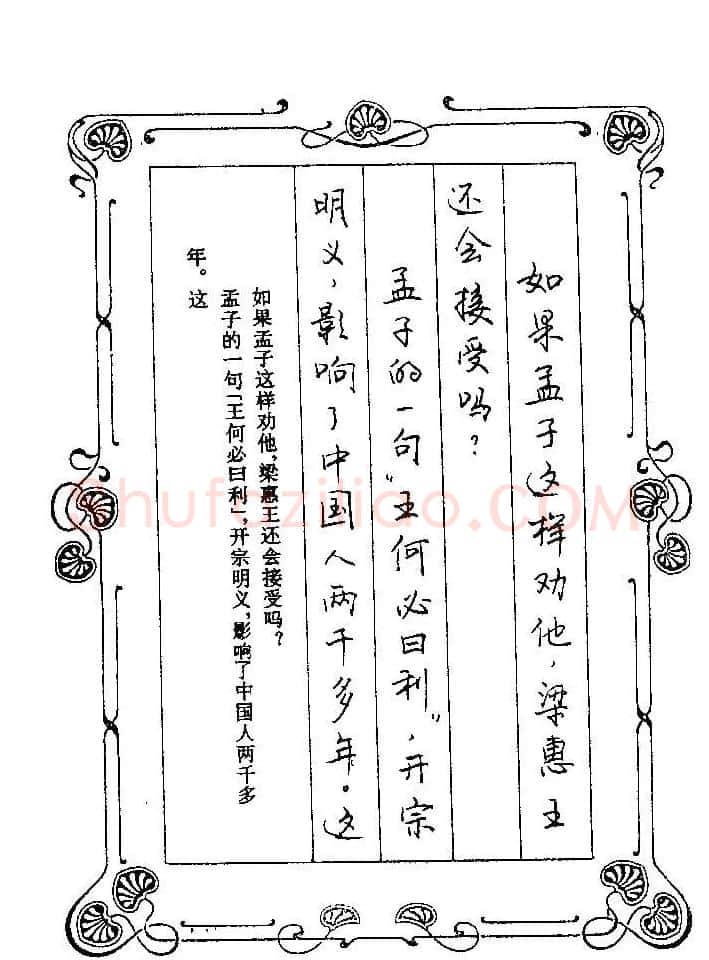 如果孟子这样劝他，梁惠王
还会接受吗？
孟子的一句“王何必曰利”，开宗
明义，影响了中国人两千多年。这
如果孟子这样劝他，梁惠王还会接受吗？
孟子的一句“王何必曰利”，开宗明义，影响了中国人两千多
年。这
Shufaziliao.COM